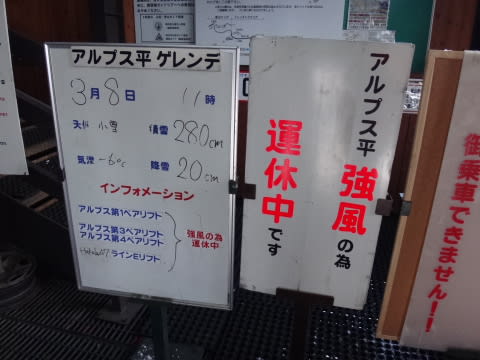 アルプス平 ゲレンデ
3月8日 11時
天候 小雪 積雪 280cm
気温 -6℃ 降雪 20cm
インフォメーション
アルプス第1ペアリフト
アルプス第3ペアリフト
アルプス第4ペアリフト
ラインEリフト
強風の為
運休中
アルプス平
強風の為
運休中です
御乗車できません!!